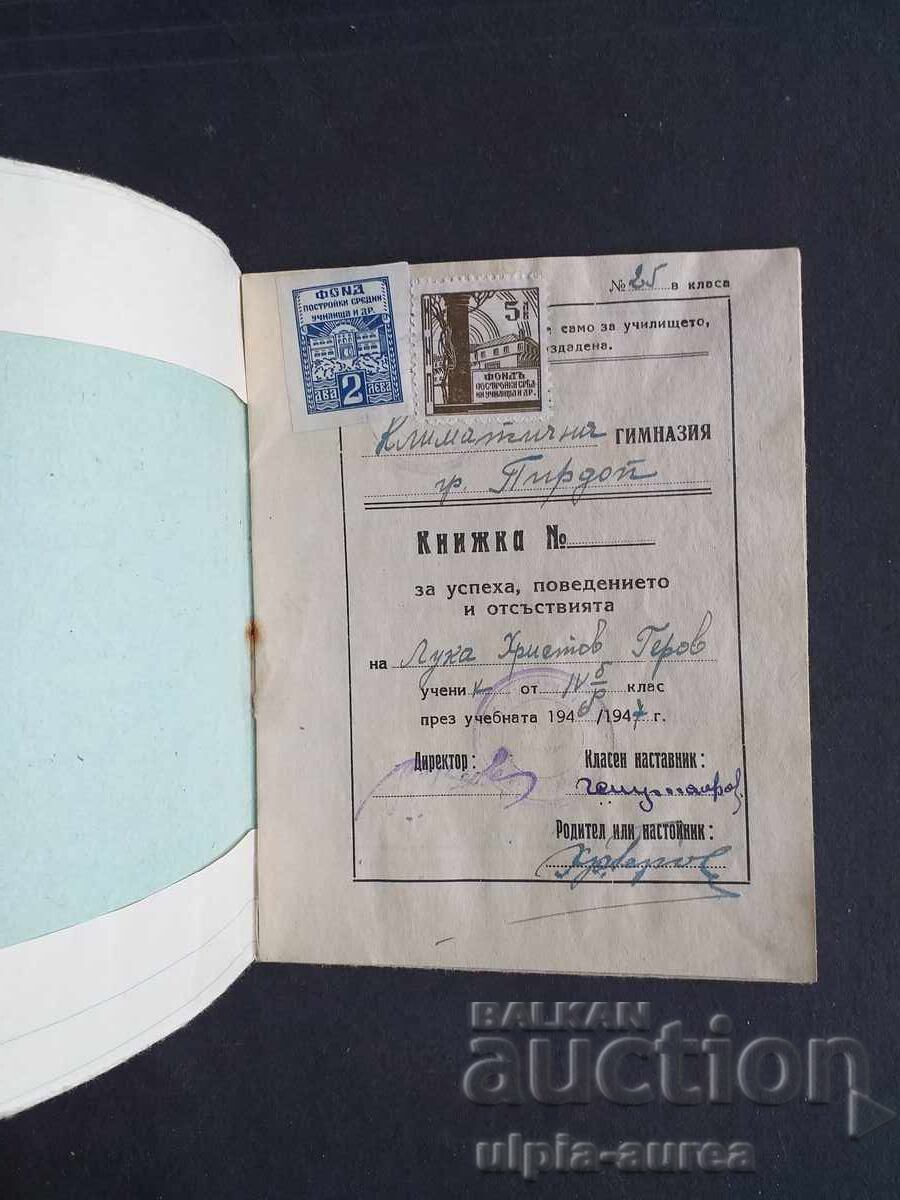 № 25 в класа
ФОНД
ПОСТРОЙКИ СРЕДНИ
УЧИЛИЩА И ДР.
ДВА 2 ЛЕВА
5
ФОНДЪ
ПОСТРОЙКИ СРѢД-
НИ УЧИЛИЩА И ДР.
само за училището,
Климатична ГИМНАЗИЯ
гр. Пирдоп
Книжка №
за успеха, поведението
и отсъствията
на Лука Христов Геров
ученик от IV б клас
през учебната 1946/1947 г.
Директор:
Класен наставник:
Родител или настойник:
BALKAN
auction
ulpia-aurea